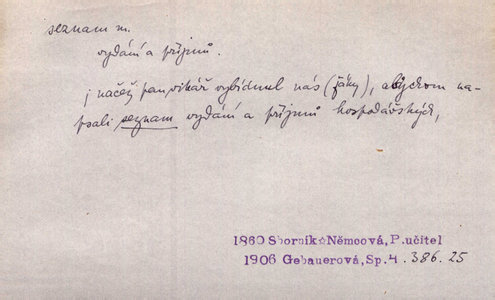 seznam m.
vydání a příjmů.
; načež pan vikář vybídnul nás (žáky), abychom na-
psali seznam vydání a příjmů hospodářských,
1860 Sborník☆Němcová, P.učitel
1906 Gebauerová, Sp.4. 386.25